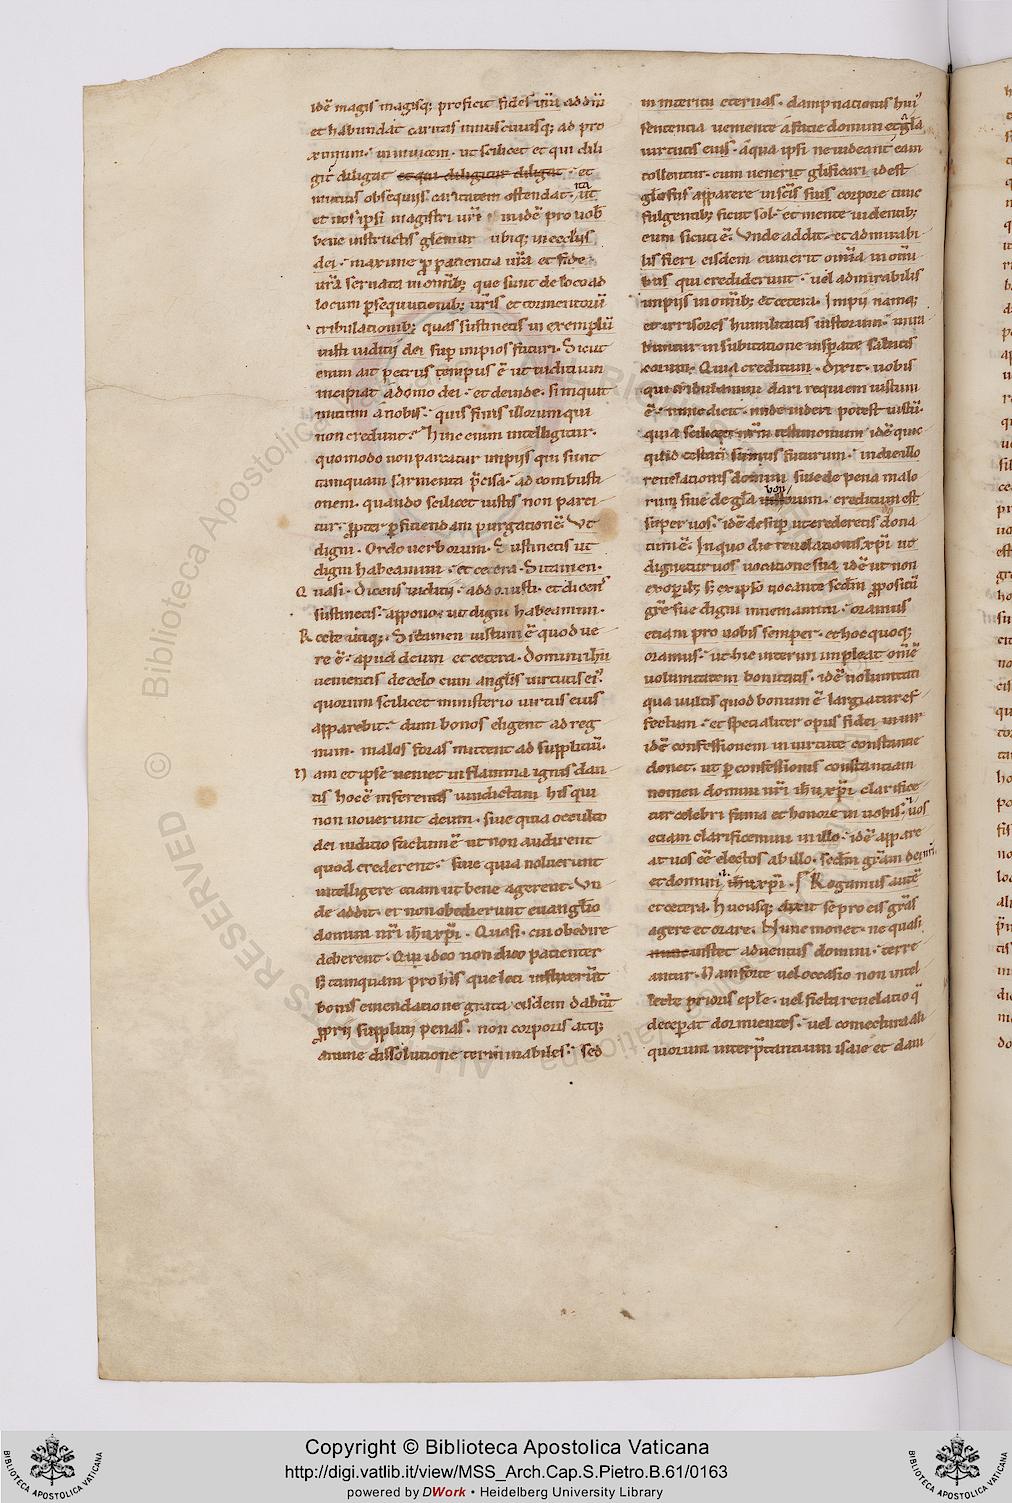 idē magis magisq; proficit fides ur̄a ad dm̄
et habundat caritas uniuscuiusq; ad pro
ximum · in inuicem · ut scilicet et qui dili
git diligat et qui diligitur diligat · et
mutuis obsequiis caritatem ostendat · ita ut
et nos ipsi magistri ur̄i idē pro uob̄
bene instructis gl̄emur ubiq; in eccl̄iis
dei · maxime ꝓ patientia ur̄a et fide
ur̄a seruata in om̄ib; que sunt de loco ad
locum ꝑsequutionib; ur̄is et tormentorū
tribulationib; quas sustinetis in exemplū
iusti iuditii dei suꝑ impios futuri · Sicut
enim ait petrus tempus ē ut iuditium
incipiat a domo dei · et deinde · si inquit
initium a nobis · quis finis illorum qui
non credunt · Hinc enim intelligitur ·
quomodo non parcatur impiis qui sunt
tamquam sarmenta p̄cisa · ad combusti
onem · quando scilicet iustis non parci
tur · ꝓpter ꝑficiendam purgationē · Ut
digni · Ordo uerborum · Sustinetis ut
digni habeamini · et cetera · Si tamen ·
Quasi · Dicens iuditii · addo iusti · et dicens
sustinetis · appono · ut digni habeamini ·
Recte utiq; · Si tamen iustum ē quod ue
re ē · apud deum et cetera · Domini ih̄u
uenientis de celo cum anglis uirtutis ei'
quorum scilicet ministerio uirtus eius
apparebit · dum bonos eligent ad reg
num · malos foras mittent ad suppliciū ·
Nam et ipse ueniet in flamma ignis dan
tis hoc ē inferentis uindictam his qui
non nouerunt deum · siue quia occulto
dei iuditio factum ē ut non audirent
quod crederent · siue quia noluerunt
intelligere etiam ut bene agerent · Un
de addit · et non obedierunt euanglīo
domini nr̄i ih̄u xp̄i · Quasi · cui obedire
deberent · Qui ideo non dico patienter
s; tamquam pro his que loci
bonis emendatione grata eisdem dabūt
ꝓprii supplitii penas · non corporis atq;
anime dissolutione terminabiles · sed
in interitu eternas · dampnationis hui'
sententia ueniente a facie domini et a gl̄a
uirtutis eius · a qua ipsi ne uideant eam
tollentur · cum uenerit glificari id est
gl̄osus apparere in scīs suis corpore tunc
fulgentib; sicut sol · et mente uidentib;
eum sicuti ē · Unde addit · et admirabi
lis fieri eisdem cum erit om̄ia in om̄i
bus qui crediderunt · uel admirabilis
impiis in om̄ib; et cetera · Impii namq;
et irrisores humilitatis iustorum · mira
buntur in subitatione insperate salutis
eorum · Quia creditum · Dixit · uobis
qui tribulamini dari requiem iustum
ē · nunc dicit · unde uideri potest iustū ·
quia scilicet nr̄m testimonium idē quic
quid testati sumus futurum · in die illo
reuelationis domini siue de pena malo
rum siue de gl̄a bonorum · creditum est
super uos · idē desuꝑ ut crederetis dona
tum ē · In quo die reuelationis xp̄i ut
dignetur uos uocatione sua idē ut non
ex oꝑib; s; ex ipso uocante secdm̄ ꝓpositū
grē sue digni inueniamini · oramus
etiam pro uobis semper · et hoc quoq;
oramus · ut hic interim impleat om̄ē
uoluntatem bonitatis · idē uoluntati
qua uultis quod bonum ē largiatur ef
fectum · et specialiter opus fidei
idē confessionem in uirtute constantie
donet · ut ꝑ confessionis constantiam
nomen domini nr̄i ih̄u xp̄i clarifice
tur celebri fama et honore in uobis · et uos
etiam clarificemini in illo · idē appare
at uos cē electos ab illo · secdm̄ grām dei nr̄i
et domini ih̄u xp̄i · Rogamus autē
et cetera · Hucusq; dixit se pro eis grās
agere et orare · Nunc monet · ne quasi
instet aduentus domini · terre
antur · Nam forte uel occasio non intel
lecte prioris epl̄e · uel ficta reuelatio q̄
deceperat dormientes · uel coniectura ali
quorum interp̄tantium isaie et dani